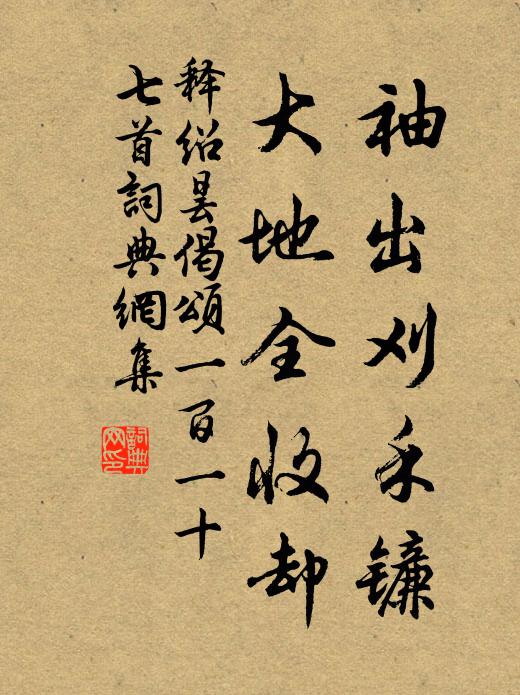 袖出刈禾镰
大地全收却
释绍昙偈颂一百一十
七首詞典網集
詞典網印